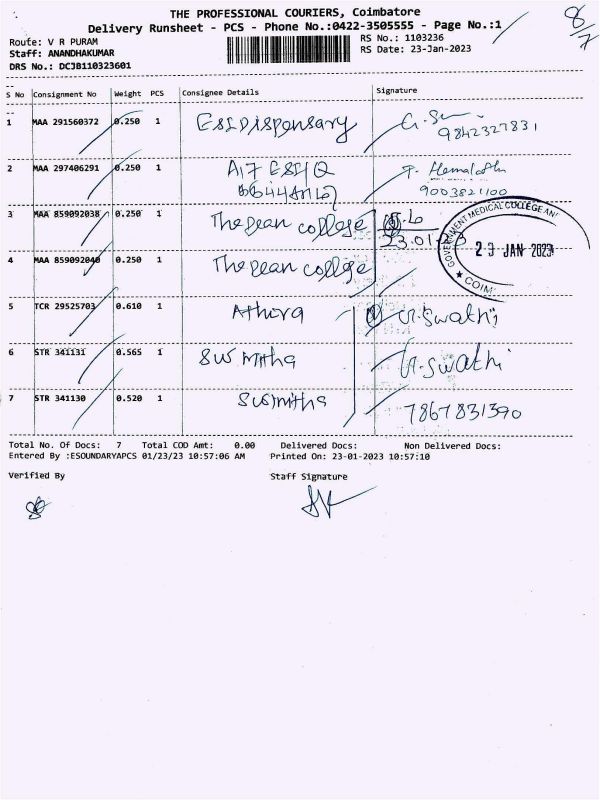 8/7
THE PROFESSIONAL COURIERS, Coimbatore
Delivery Runsheet - PCS - Phone No.:0422-3505555 - Page No.:1
Route: V R PURAM
RS No.: 1103236
Staff: ANANDHAKUMAR
RS Date: 23-Jan-2023
DRS No.: DCJB110323601
S No Consignment No Weight PCS Consignee Details Signature
1 MAA 291560372 0.250 1 ESI Dispensary
9842327831
2 MAA 297406291 0.250 1 A17 ESI Q T. Hemalatha
9003821100
3 MAA 859092038 0.250 1 The Dean college
23.01.23
GOVERNMENT MEDICAL COLLEGE AN
23 JAN 2023
COIM
4 MAA 859092040 0.250 1 The Dean college
5 TCR 29525703 0.610 1 Athira G.Swathi
6 STR 341131 0.565 1 Susmitha G.Swathi
7 STR 341130 0.520 1 Susmitha 7867831390
Total No. Of Docs: 7 Total COD Amt: 0.00 Delivered Docs: Non Delivered Docs:
Entered By :ESOUNDARYAPCS 01/23/23 10:57:06 AM Printed On: 23-01-2023 10:57:10
Verified By Staff Signature